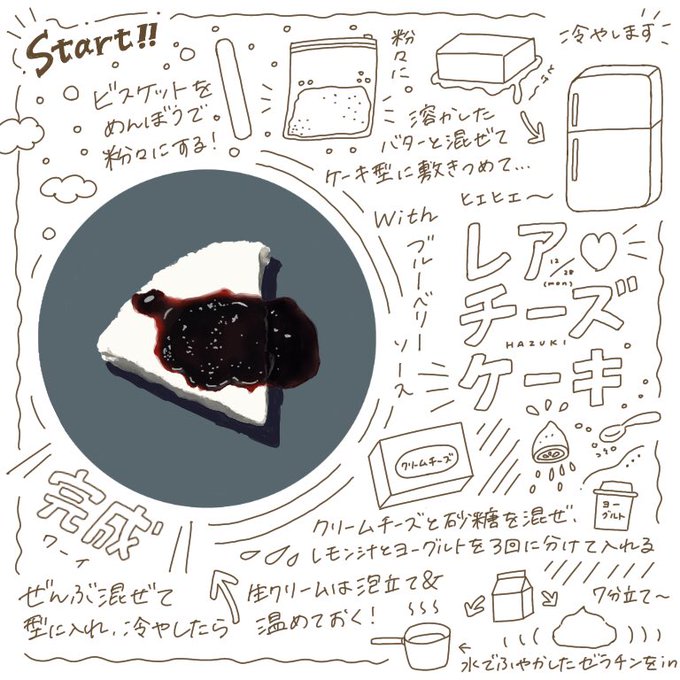 Start!!
ビスケットを
めんぼうで
粉々にする!
粉々に
溶かした
バターと混ぜて
ケーキ型に敷きつめて…
冷やします
ヒエヒエ〜
With
ブルーベリー
ソース
レア
12/28
(mon)
チーズ
HAZUKI
ケーキ
クリームチーズ
ヨーグルト
クリームチーズと砂糖を混ぜ、
レモン汁とヨーグルトを3回に分けて入れる
7分立て〜
生クリームは泡立て&
温めておく!
水でふやかしたゼラチンをin
ぜんぶ混ぜて
型に入れ、冷やしたら
完成